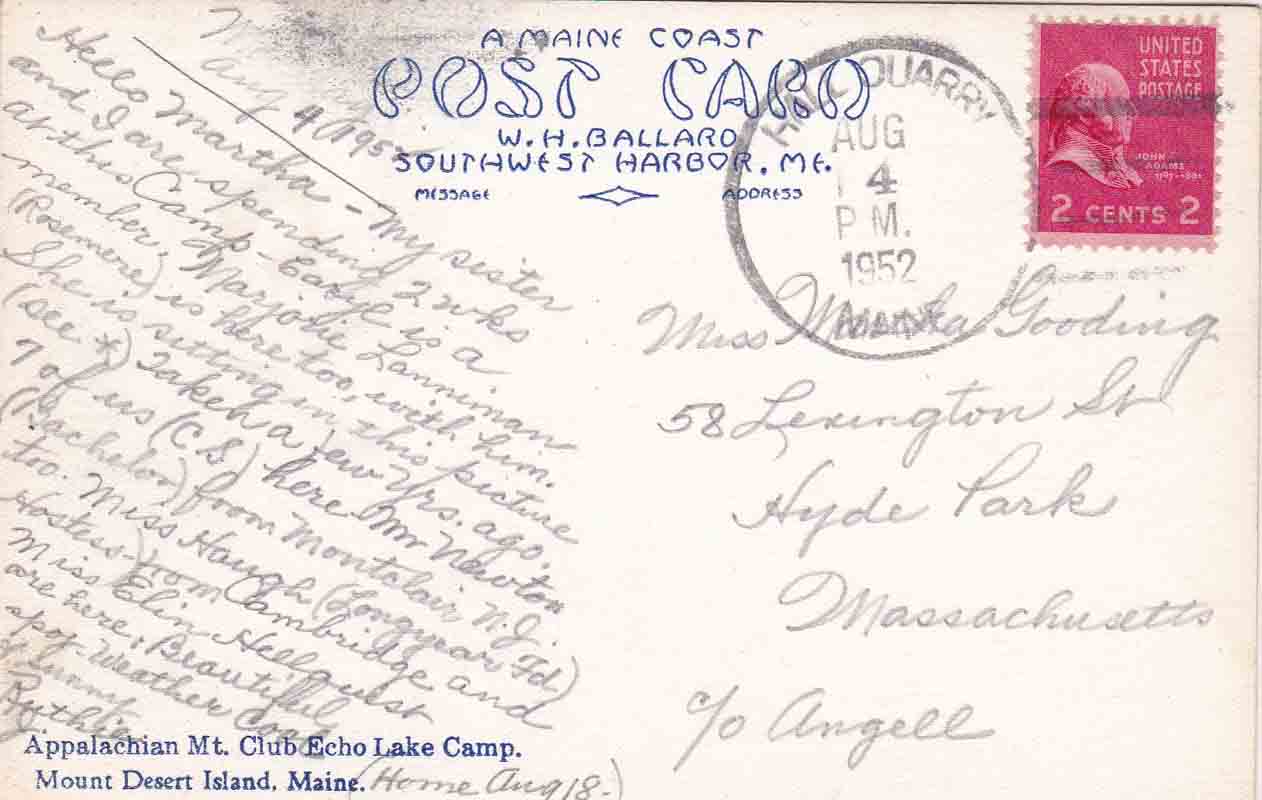 A MAINE COAST
POST CARD
W. H. BALLARD
SOUTHWEST HARBOR, ME.
MESSAGE ADDRESS
Aug 4, 1952
Hello Martha - My sister
and I are spending 2 wks
at this Camp - Caryl is a
member, Marjorie Lanniman
(Rosemere) is here too, with him.
She is sitting in this picture
(see *) Taken a few yrs. ago.
7 of us (C.S) here Mr Newton
(bachelor) from Montclair, N.J.
too. Miss Haugh (Longyear Fd
Hostess) from Cambridge and
Miss Elin Hellquist
are here. Beautiful
spot - Weather Cool
& Sunny
Ruthie
Appalachian Mt. Club Echo Lake Camp.
Mount Desert Island, Maine.
(Home Aug 18-)
HALL QUARRY
AUG
4
P.M.
1952
MAINE
UNITED
STATES
POSTAGE
JOHN
ADAMS
1797-1801
2 CENTS 2
Miss Martha Gooding
58 Lexington St
Hyde Park
Massachusetts
c/o Angell